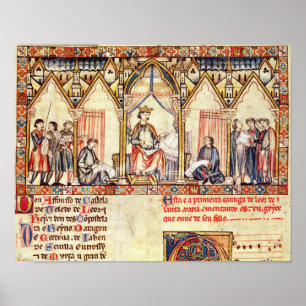 Don Affonso de Castela
de Toledo de Leon
Rey e ben des Compostela
ta o Reyno daragon
De Cordoua de Jahen
de Seuilla outrossi
e de Murça u gran bē
Esta e a primeira cantiga de loor de
santa maria ementando os .vii. goyos
que ouue de seu fillo.